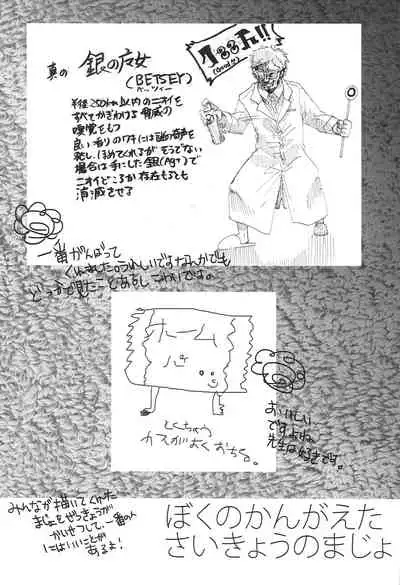 真の 銀の魔女
(BETSEY)
ベッツィー
半径250km以内のニオイを
すべてかぎわける脅威の
嗅覚をもつ
良い香りのワキには謎の奇声を
発し、ほめてくれるが そうでない
場合は手にした銀(Ag+)で
ニオイどころか存在もろとも
消滅させる
(Good!!)
一番がんばって
くれました。うれしいですねなんかでも
どっかで見たことあるし こわいですね。
ホーム
パイ
とくちょう
カスがよくおちる。
おいしい
ですよね。
先生は好きです。
みんなが描いてくれた
まじょをぜっきょうが
かいせつして、一番の人
にはいいことが
あるよ!
ぼくのかんがえた
さいきょうのまじょ